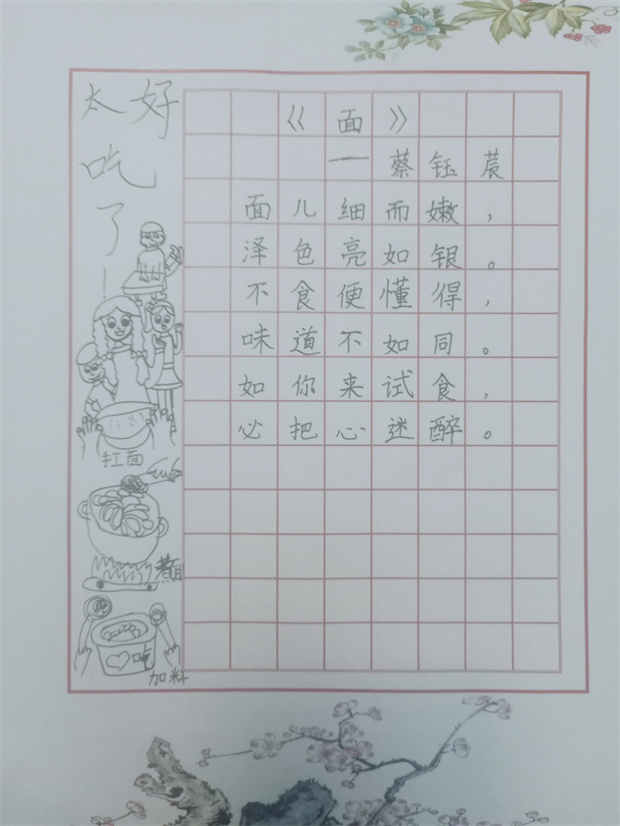 《面》
—蔡钰莀
面儿细而嫩，
泽色亮如银。
不食便懂得，
味道不如同。
如你来试食，
必把心迷醉。
太好
吃
了！
扛面
煮面
吃
加料